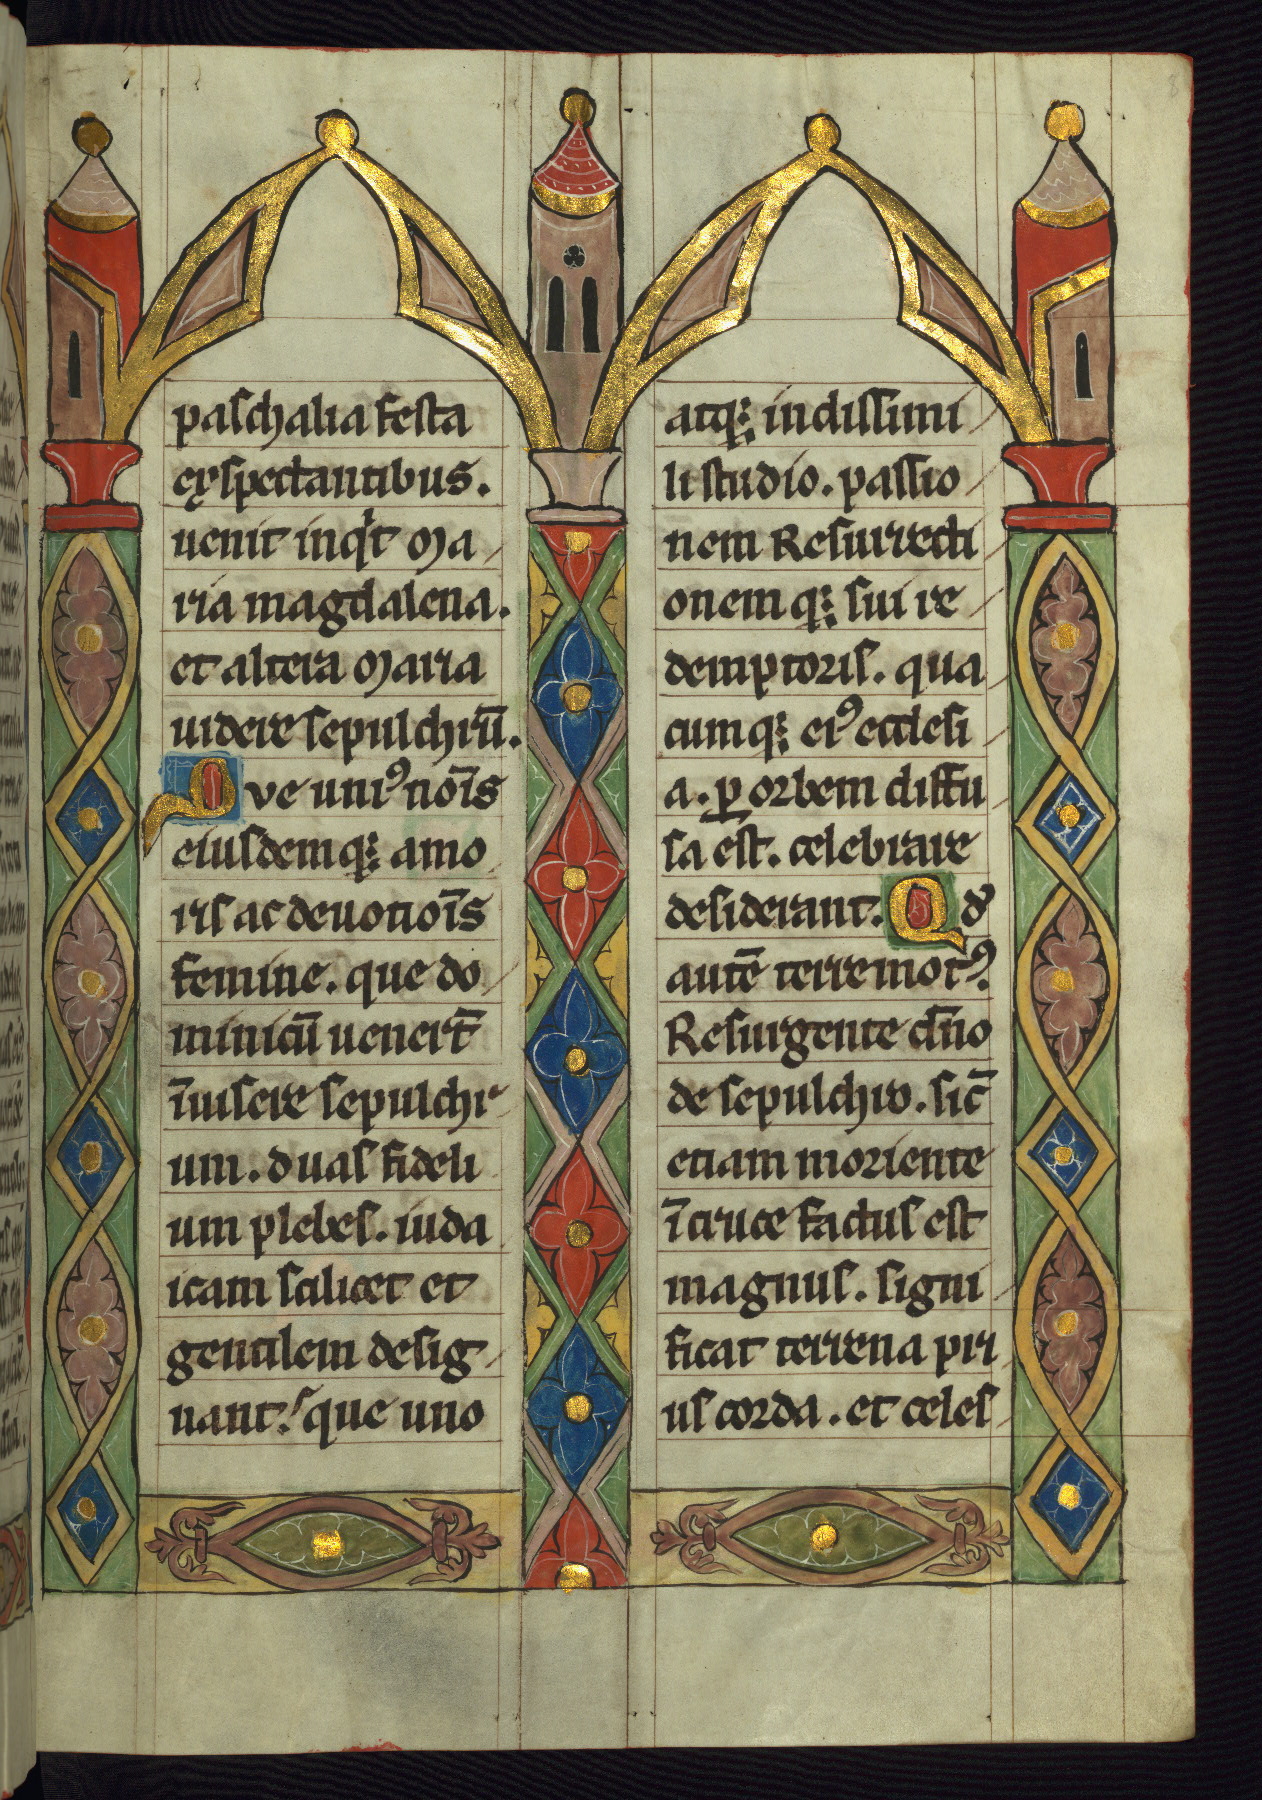 paschalia festa
exspectantibus.
uenit inqͥt Ma
ria magdalena.
et altera Maria
uidere sepulchrū.
Que uniꝰ noīs
eiusdemqꝫ amo
ris ac deuotioīs
femine. que do
minicū uenert̄
īuisere sepulchr
um. duas fideli
um plebes. iuda
icam scilicet et
gentilem desig
nant. que uno
atqꝫ indissimi
li studio. passio
nem Resurrecti
onemqꝫ sui re
demptoris. qua
cumqꝫ eiꝰ ecclesi
a. ꝑ orbem diffu
sa est. celebrare
desiderant. Qd
autē terremotꝰ.
Resurgente dn̄o
de sepulchro. sic̄
etiam moriente
ī cruce factus est
magnus. signi
ficat terrena pri
us corda. et celes